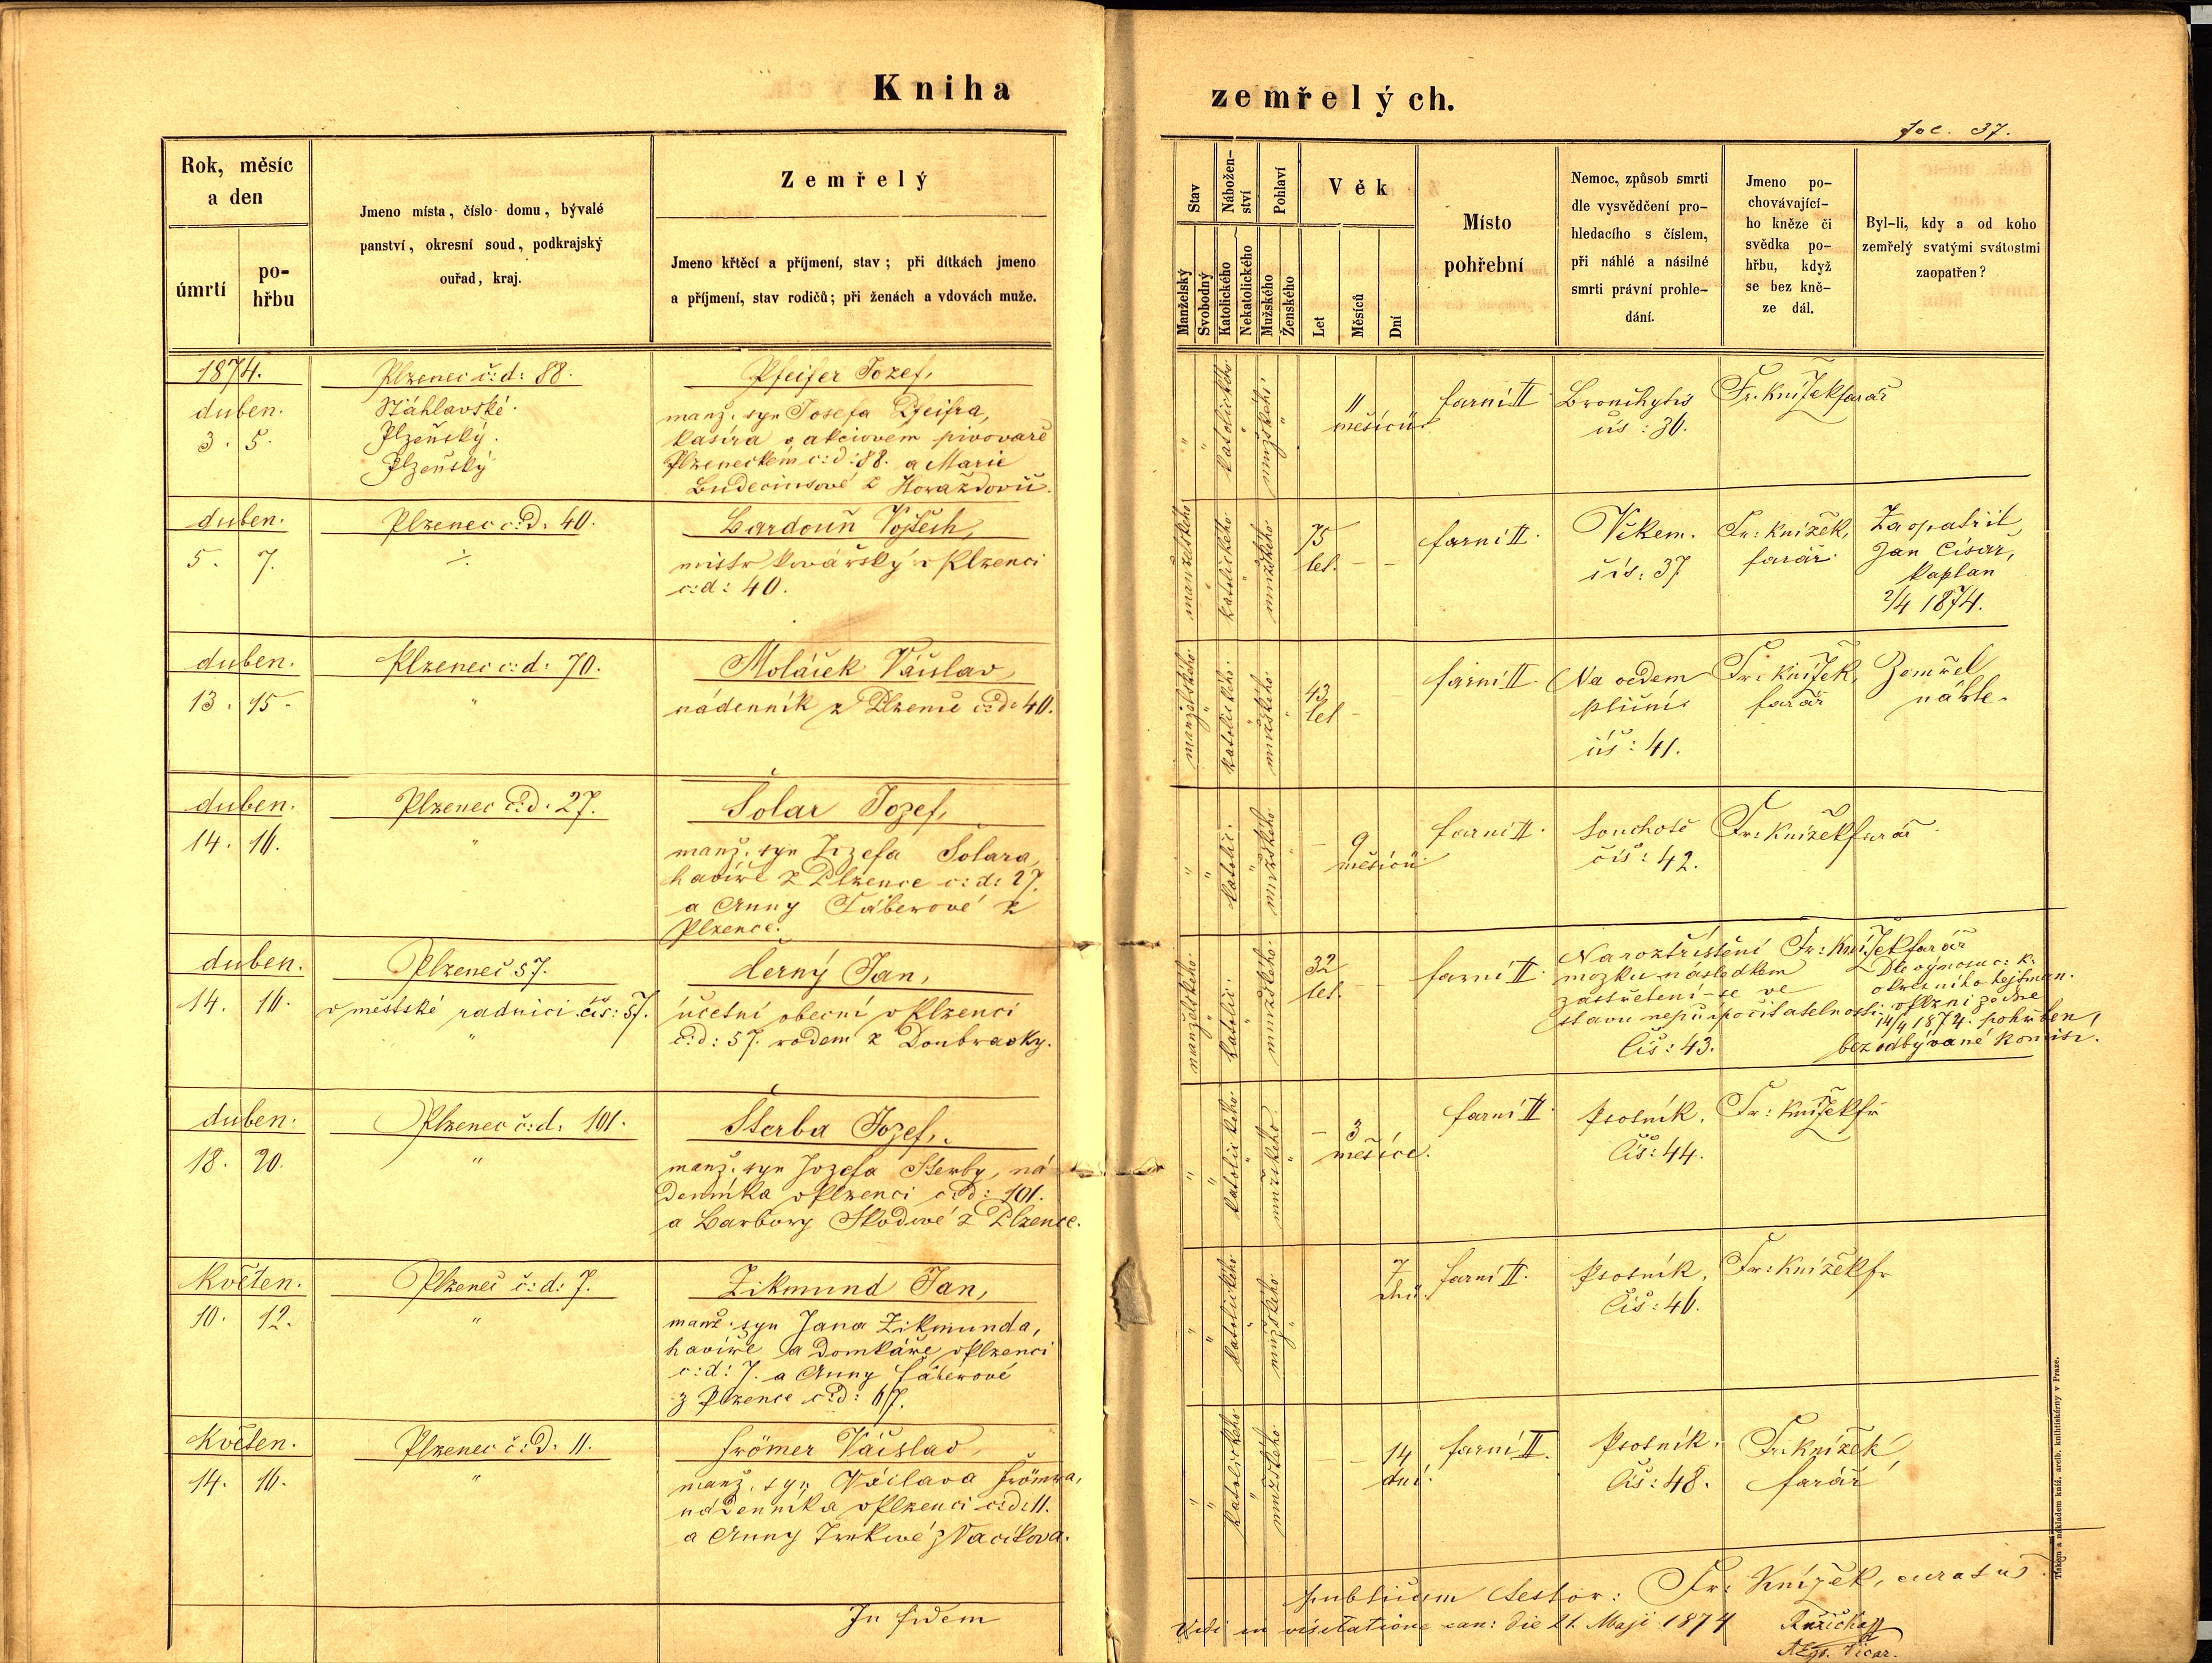 Kniha
zemřelých.
fol. 37.
Rok, měsíc
a den
úmrtí
po-
hřbu
Jmeno místa, číslo domu, bývalé
panství, okresní soud, podkrajský
ouřad, kraj.
Zemřelý
Jmeno křtěcí a příjmení, stav; při dítkách jmeno
a příjmení, stav rodičů; při ženách a vdovách muže.
Stav
Manželský
Svobodný
Nábožen-
ství
Katolického
Nekatolického
Pohlaví
Mužského
Ženského
Věk
Let
Měsíců
Dní
Místo
pohřební
Nemoc, způsob smrti
dle vysvědčení pro-
hledacího s číslem,
při náhlé a násilné
smrti právní prohle-
dání.
Jmeno po-
chovávající-
ho kněze či
svědka po-
hřbu, když
se bez kně-
ze dál.
Byl-li, kdy a od koho
zemřelý svatými svátostmi
zaopatřen?
1874.
duben.
3. 5.
Plzenec č: d: 88.
Šťáhlavské.
Plzeňský.
Plzeňský
Pfeifer Jozef,
manž. syn Josefa Pfeifra,
kasíra v akciovem pivovaře
Plzeneckém c: d: 88. a Marie
z Horažďovů.
" " katolického " mužského "
11
měsíců
farní II
Bronchytis
čís: 36.
Fr. Knížek farář
duben.
5. 7.
Plzenec c: d: 40.
Bardouň Vojtěch,
mistr kovářský v Plzenci
c: d: 40.
manželského " katolického " mužského
75
let. - -
farní II.
Věkem.
čís: 37
Fr: Knížek,
farář.
Zaopatřil
Jan Císař,
kaplan
2/4 1874.
duben.
13. 15.
Plzenec c: d: 70.
"
Moláček Václav
nádenník z Plzence č: d: 40.
manželského " katolického. " mužského "
43
let -
farní II.
Na oedem
plicní
čís: 41.
Fr: Knížek,
farář
Zemřel
náhle.
duben.
14. 16.
Plzenec č: d: 27.
"
Šolar Jozef,
manž. syn Jozefa Šolara,
havíře z Plzence c: d: 27.
a Anny Táberové z
Plzence.
" " katolic. " mužského "
- 9
měsíců
farní II.
Souchotě
čís: 42.
Fr: Knížek farář
duben.
14. 16.
Plzenec 57.
v městské radnici čís: 57.
"
Černý Jan,
účetní obecní v Plzenci
č: d: 57. rodem z Doubravky.
manželského " katolic. " mužského
32
let. - -
farní II.
Na roztříštění
mozku následkem
zastřelení se ve
stavu nepřipočitatelnosti.
Čís: 43.
Fr: Knížek farář
Dle výnosu c: k:
okresního hejtman.
v Plzni ze dne
14/4 1874. pohřben,
bez odbývané komisi.
duben.
18. 20.
Plzenec č: d: 101.
"
Šterba Jozef,
manž. syn Jozefa Šterby, ná-
denníka v Plzenci c: d: 101.
a Barbory Škodové z Plzence.
" " katolického " mužského "
- 3
měsíce.
farní II.
Psotník.
Čís: 44.
Fr: Knížek fr
Květen.
10. 12.
Plzenec č: d: 7.
"
Zikmund Jan,
manž. syn Jana Zikmunda,
havíře a domkáře v Plzenci
c: d: 7. a Anny Fáberové
z Plzence c: d: 67.
" " katolického " mužského "
7
dnů.
farní II.
Psotník.
Čís: 46.
Fr: Knížek fr
Květen.
14. 16.
Plzenec č: d: 11.
"
Frömer Václav
manž. syn Václava Frömra,
nádenníka v Plzenci c: d: 11.
a Anny z Vacíkova.
" " katolického " mužského
- - 14
dní.
farní II.
Psotník.
Čís: 48.
Fr. Knížek
farář
In fidem
publicam testor: Fr: Knížek, curatus
Vidi in visitatione can: die 21. Maji 1874 Růžička
Vicar.
Tiskem a nákladem kníž. arcib. knihtiskárny v Praze.